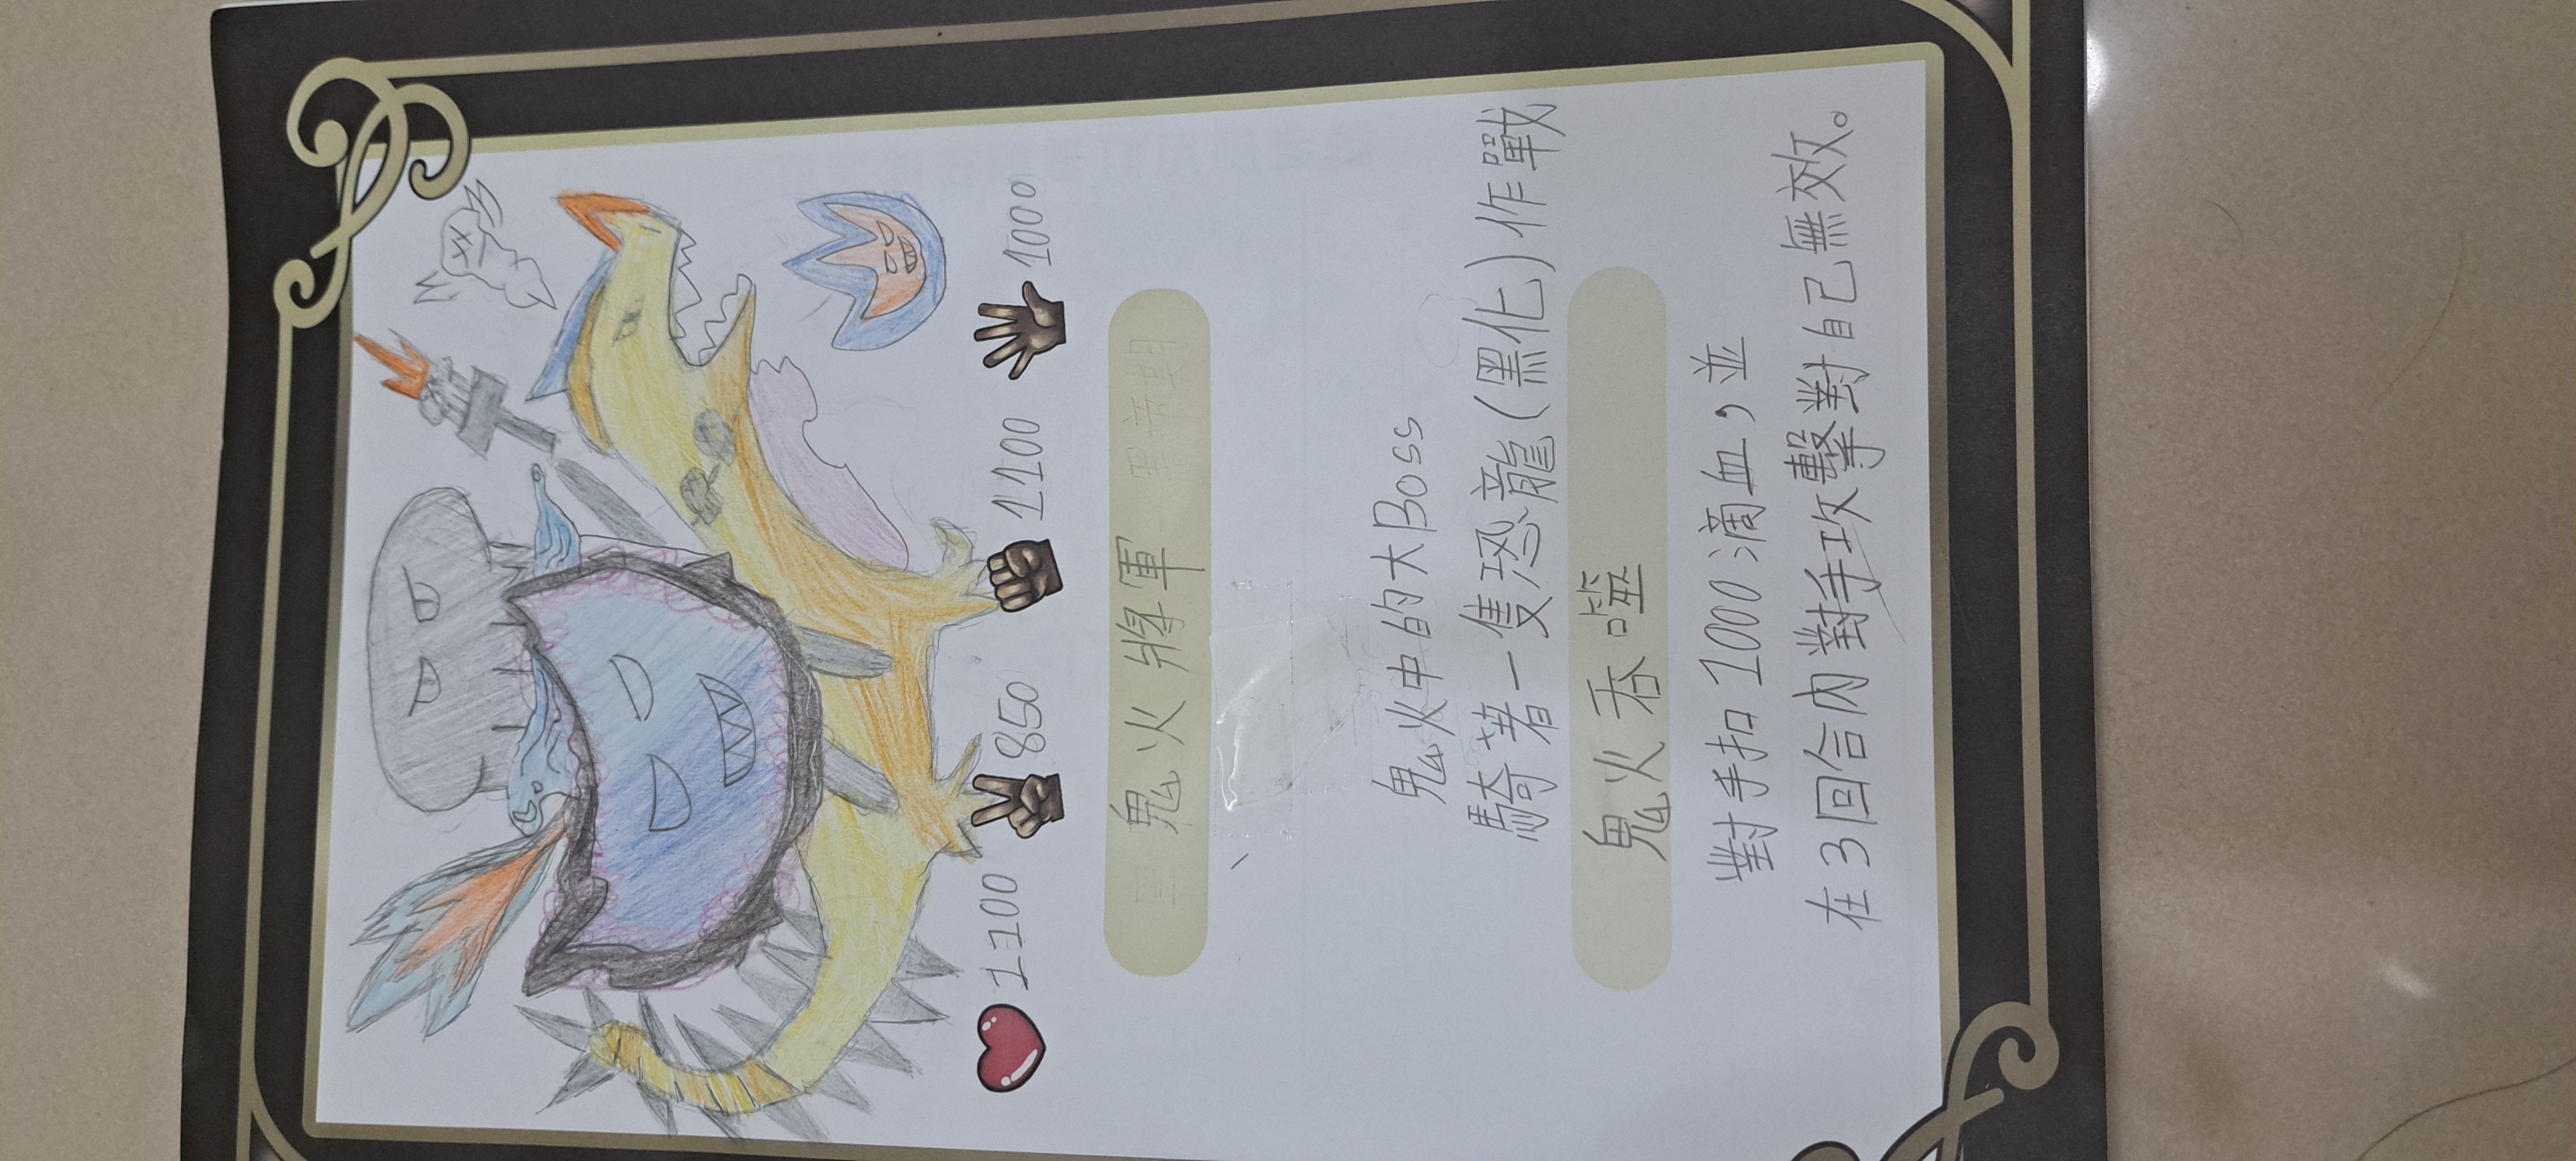 1100 850 1100 1000
鬼火將軍
鬼火中的大Boss
騎著一隻恐龍(黑化)作戰
鬼火吞噬
對手扣1000滴血,並
在3回合內對手攻擊對自己無效。